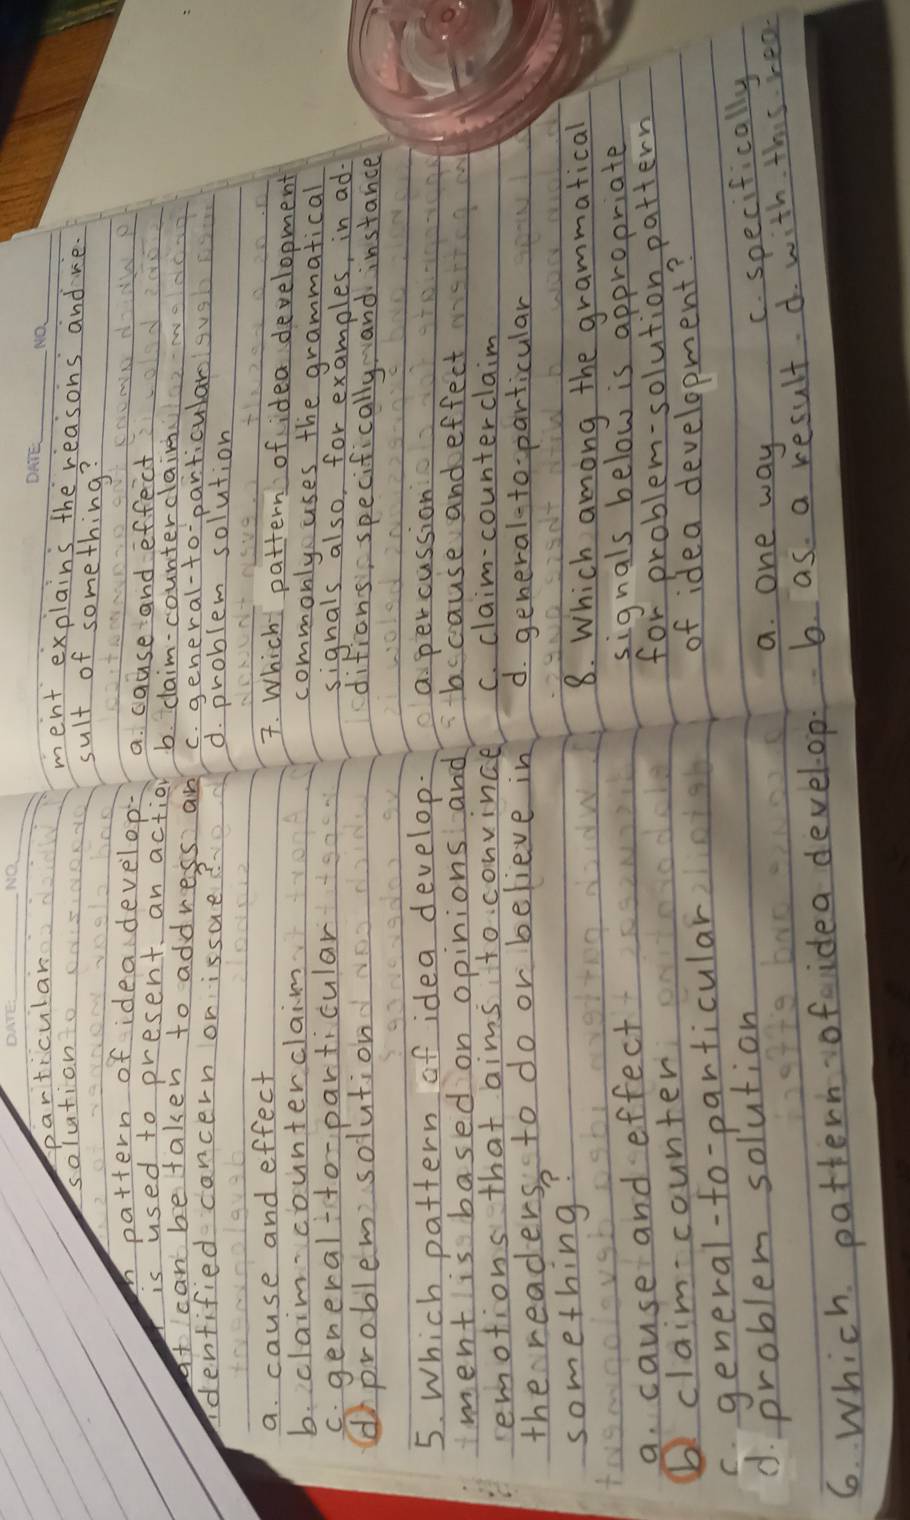 DATE NO
particular
solution
pattern of idea develop-
is used to present an action
can be taken to address an
identified concern or issue?
a. cause and effect
b. claim-counterclaim
c. general-to-particular
d. problem solution
5. Which pattern of idea develop-
ment is based on opinions and
emotions that aims to convince
the readers to do or believe in
something?
a. cause and effect
b. claim-counter
c. general-to-particular
d. problem solution
6. Which pattern of idea develop-
DATE NO
ment explains the reasons and re-
sult of something?
a. cause and effect
b. claim-counterclaim
c. general-to-particular
d. problem solution
7. Which pattern of idea development
commonly uses the grammatical
signals also, for examples, in ad-
ditions, specifically and instance
a. percussion
b. cause and effect
c. claim-counterclaim
d. general-to-particular
8. Which among the grammatical
signals below is appropriate
for problem-solution pattern
of idea development?
a. one way c. specifically
b. as a result d. with this rea-